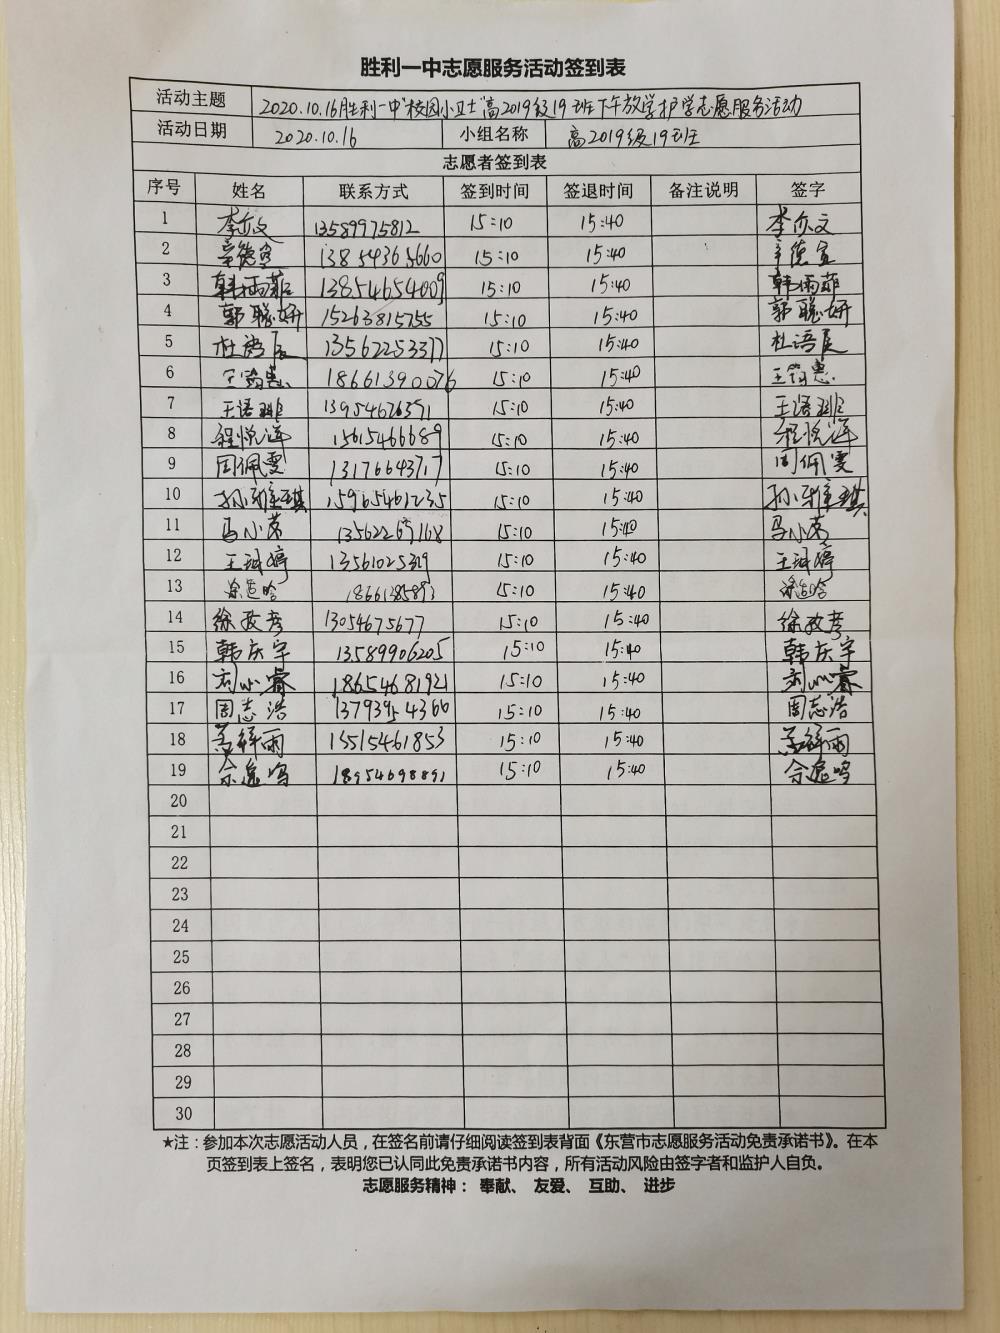 胜利一中志愿服务活动签到表
活动主题 2020.10.16胜利一中"校园小卫士"高2019级19班下午放学护学志愿服务活动
活动日期 2020.10.16 小组名称 高2019级19班
志愿者签到表
序号 姓名 联系方式 签到时间 签退时间 备注说明 签字
1 李亦文 13589975812 15:10 15:40 李亦文
2 辛德宣 13854365660 15:10 15:40 辛德宣
3 韩雨菲 13854654009 15:10 15:40 韩雨菲
4 郭聪妍 15263815755 15:10 15:40 郭聪妍
5 杜语辰 13562253377 15:10 15:40 杜语辰
6 王筠惠 18661390076 15:10 15:40 王筠惠
7 王语琲 13954676371 15:10 15:40 王语琲
8 程悦洋 15615466689 15:10 15:40 程悦洋
9 周佩雯 13176643717 15:10 15:40 周佩雯
10 孙雅琪 15965461235 15:10 15:40 孙雅琪
11 马小茗 15:10 15:40 马小茗
12 王珂婷 13561025319 15:10 15:40 王珂婷
13 15:10 15:40
14 徐孜彦 13054675677 15:10 15:40 徐孜彦
15 韩庆宇 13589906205 15:10 15:40 韩庆宇
16 刘心睿 18654681921 15:10 15:40 刘心睿
17 周志浩 13793954366 15:10 15:40 周志浩
18 15515461853 15:10 15:40
19 佘逸鸣 18954698891 15:10 15:40 佘逸鸣
20
21
22
23
24
25
26
27
28
29
30
★注：参加本次志愿活动人员，在签名前请仔细阅读签到表背面《东营市志愿服务活动免责承诺书》。在本
页签到表上签名，表明您已认同此免责承诺书内容，所有活动风险由签字者和监护人自负。
志愿服务精神： 奉献、 友爱、 互助、 进步